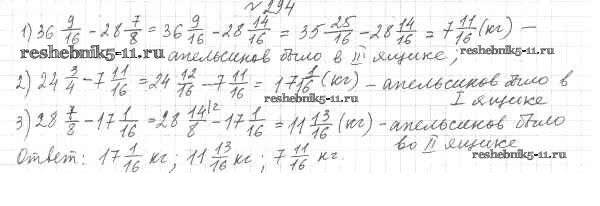 №294
1) 36 9/16 - 28 7/8 = 36 9/16 - 28 14/16 = 35 25/16 - 28 14/16 = 7 11/16 (кг) —
reshebnik5-11.ru апельсинов было в III ящике;
reshebnik5-11.ru
2) 24 3/4 - 7 11/16 = 24 12/16 - 7 11/16 = 17 1/16 (кг) - апельсинов было в
reshebnik5-11.ru I ящике
3) 28 7/8 - 17 1/16 = 28 14/8 - 17 1/16 = 11 13/16 (кг) - апельсинов было
во II ящике
Ответ: 17 1/16 кг; 11 13/16 кг; 7 11/16 кг.
reshebnik5-11.ru